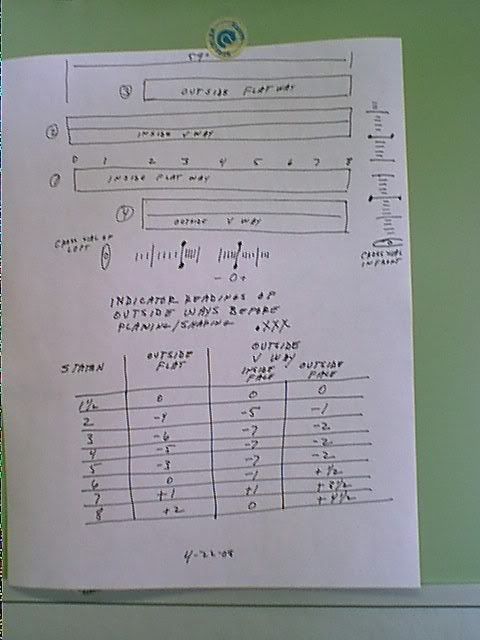 59"
③ OUTSIDE FLAT WAY
② INSIDE V WAY
0 1 2 3 4 5 6 7 8
① INSIDE FLAT WAY
④ OUTSIDE V WAY
CROSS VIAL OF LEFT
CROSS VIAL IN FRONT
- 0 +
INDICATOR READINGS OF
OUTSIDE WAYS BEFORE
PLANING/SHAPING .XXX
STATION OUTSIDE FLAT OUTSIDE V WAY INSIDE FACE OUTSIDE FACE
1 1/2 0 0 0
2 -4 -5 -1
3 -6 -7 -2
4 -5 -7 -2
5 -3 -7 -2
6 0 -1 +1/2
7 +1 +1 +3 1/2
8 +2 0 +4 1/2
4-22-08